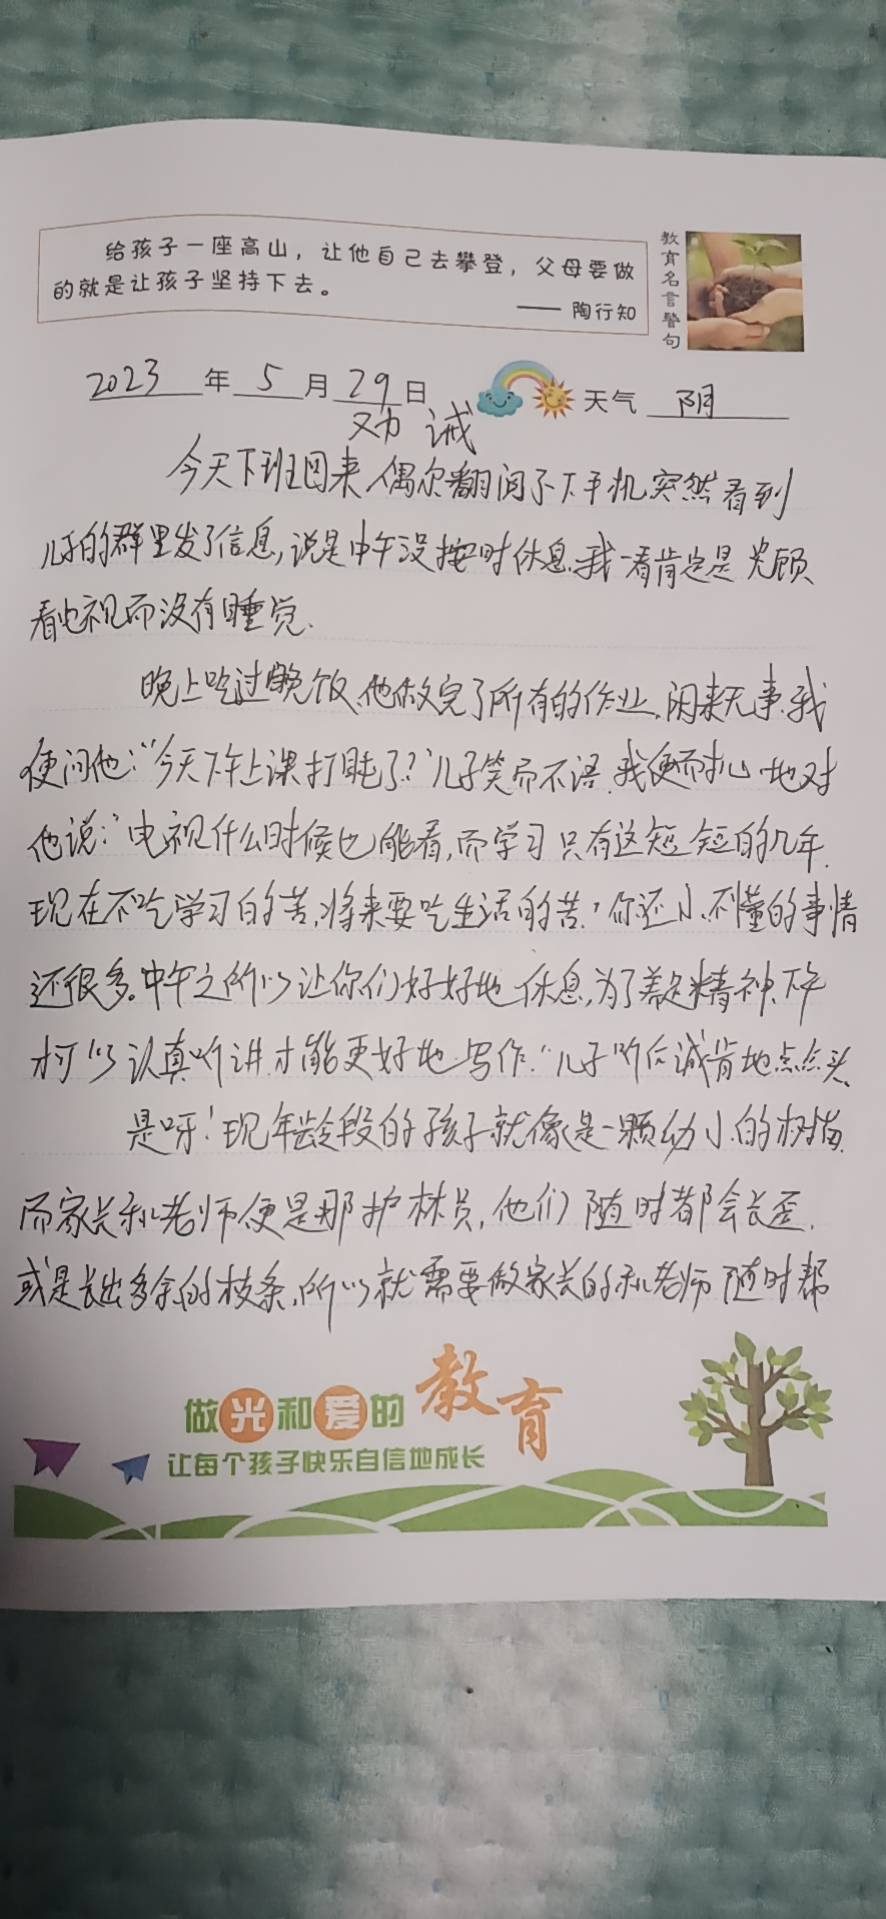 给孩子一座高山，让他自己去攀登，父母要做
的就是让孩子坚持下去。
—— 陶行知
教育名言警句
2023年5月29日 天气 阴
劝诫
今天下班回来,偶尔翻阅了下手机,突然看到
儿子的群里发了信息,说是中午没按时休息.我一看肯定是光顾
看电视而没有睡觉.
晚上吃过晚饭,他做完了所有的作业,闲来无事.我
便问他:"今天下午上课打盹了?"儿子笑而不语.我便耐心地对
他说:"电视什么时候也能看,而学习只有这短短的几年.
现在不吃学习的苦,将来要吃生活的苦.你还小,不懂的事情
还很多。中午之所以让你们好好地休息,为了养足精神,下午
才可以认真听讲.才能更好地写作."儿子听后诚肯地点点头.
是呀!现年龄段的孩子就像是一颗幼小的树苗.
而家长和老师便是那护林员,他们随时都会长歪.
或是长出多余的枝条,所以就需要做家长的和老师随时帮
做光和爱的教育
让每个孩子快乐自信地成长